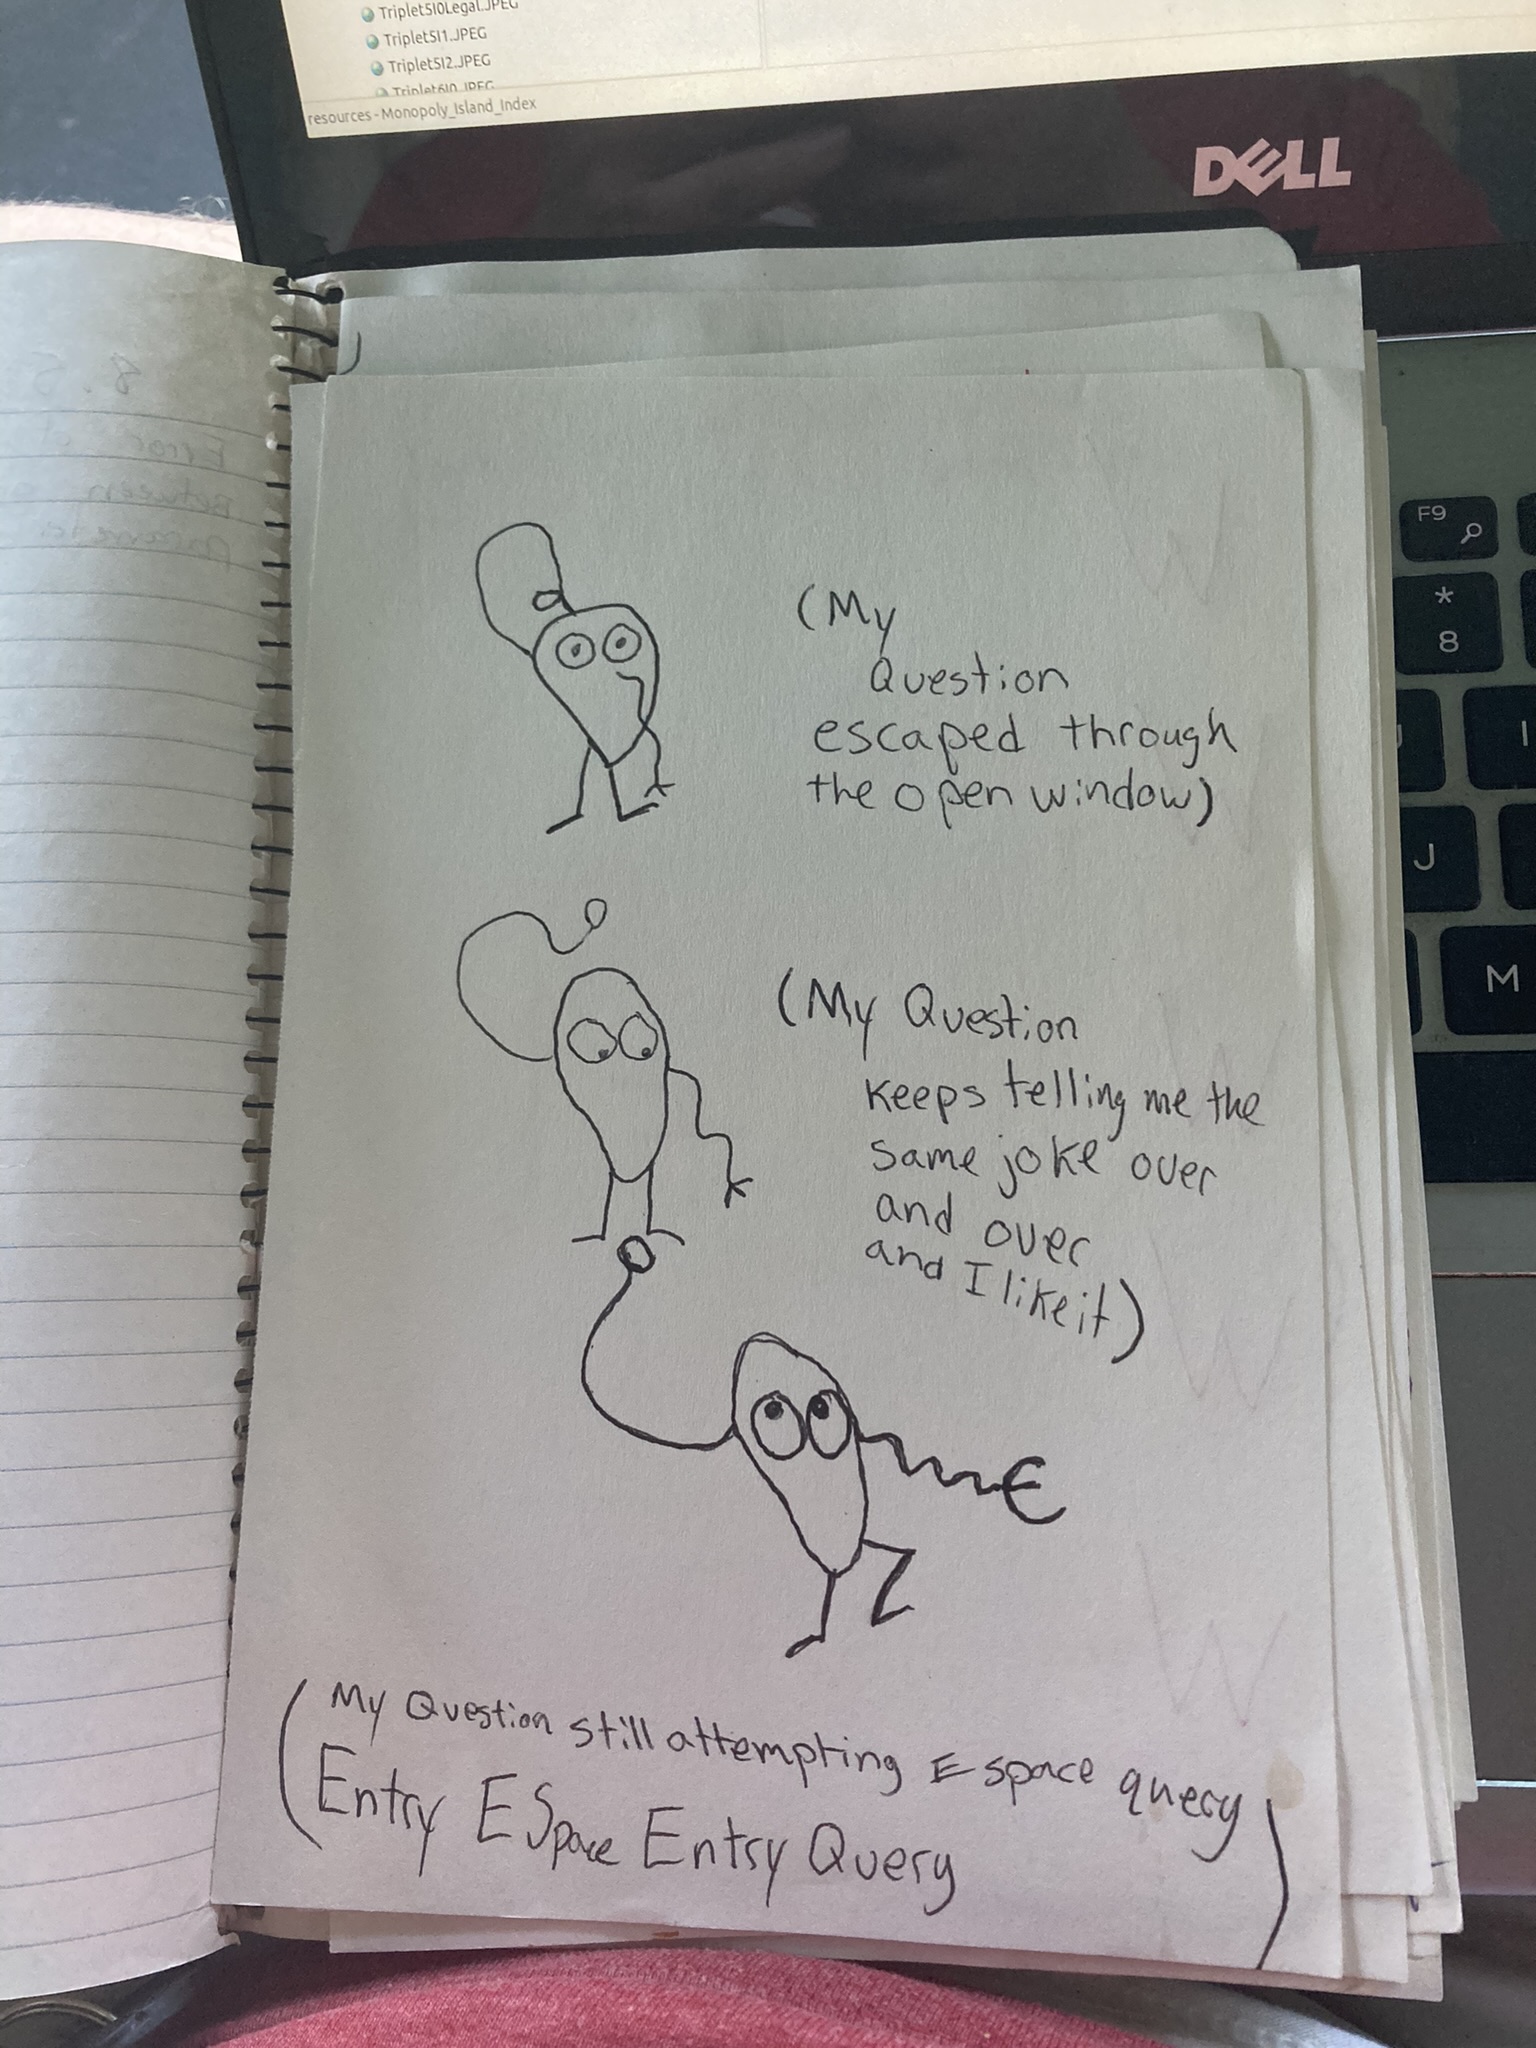 Triplet5I0Legal.JPEG
Triplet5I1.JPEG
Triplet5I2.JPEG
Triplet6I0.JPEG
resources - Monopoly_Island_Index
DELL
F9
*
8
I
J
M
(My
Question
escaped through
the open window)
(My Question
keeps telling me the
same joke over
and over
and I like it)
(My Question still attempting E space query
Entry ESpace Entry Query)
W
W
W
W
W
8. S
Error
Between